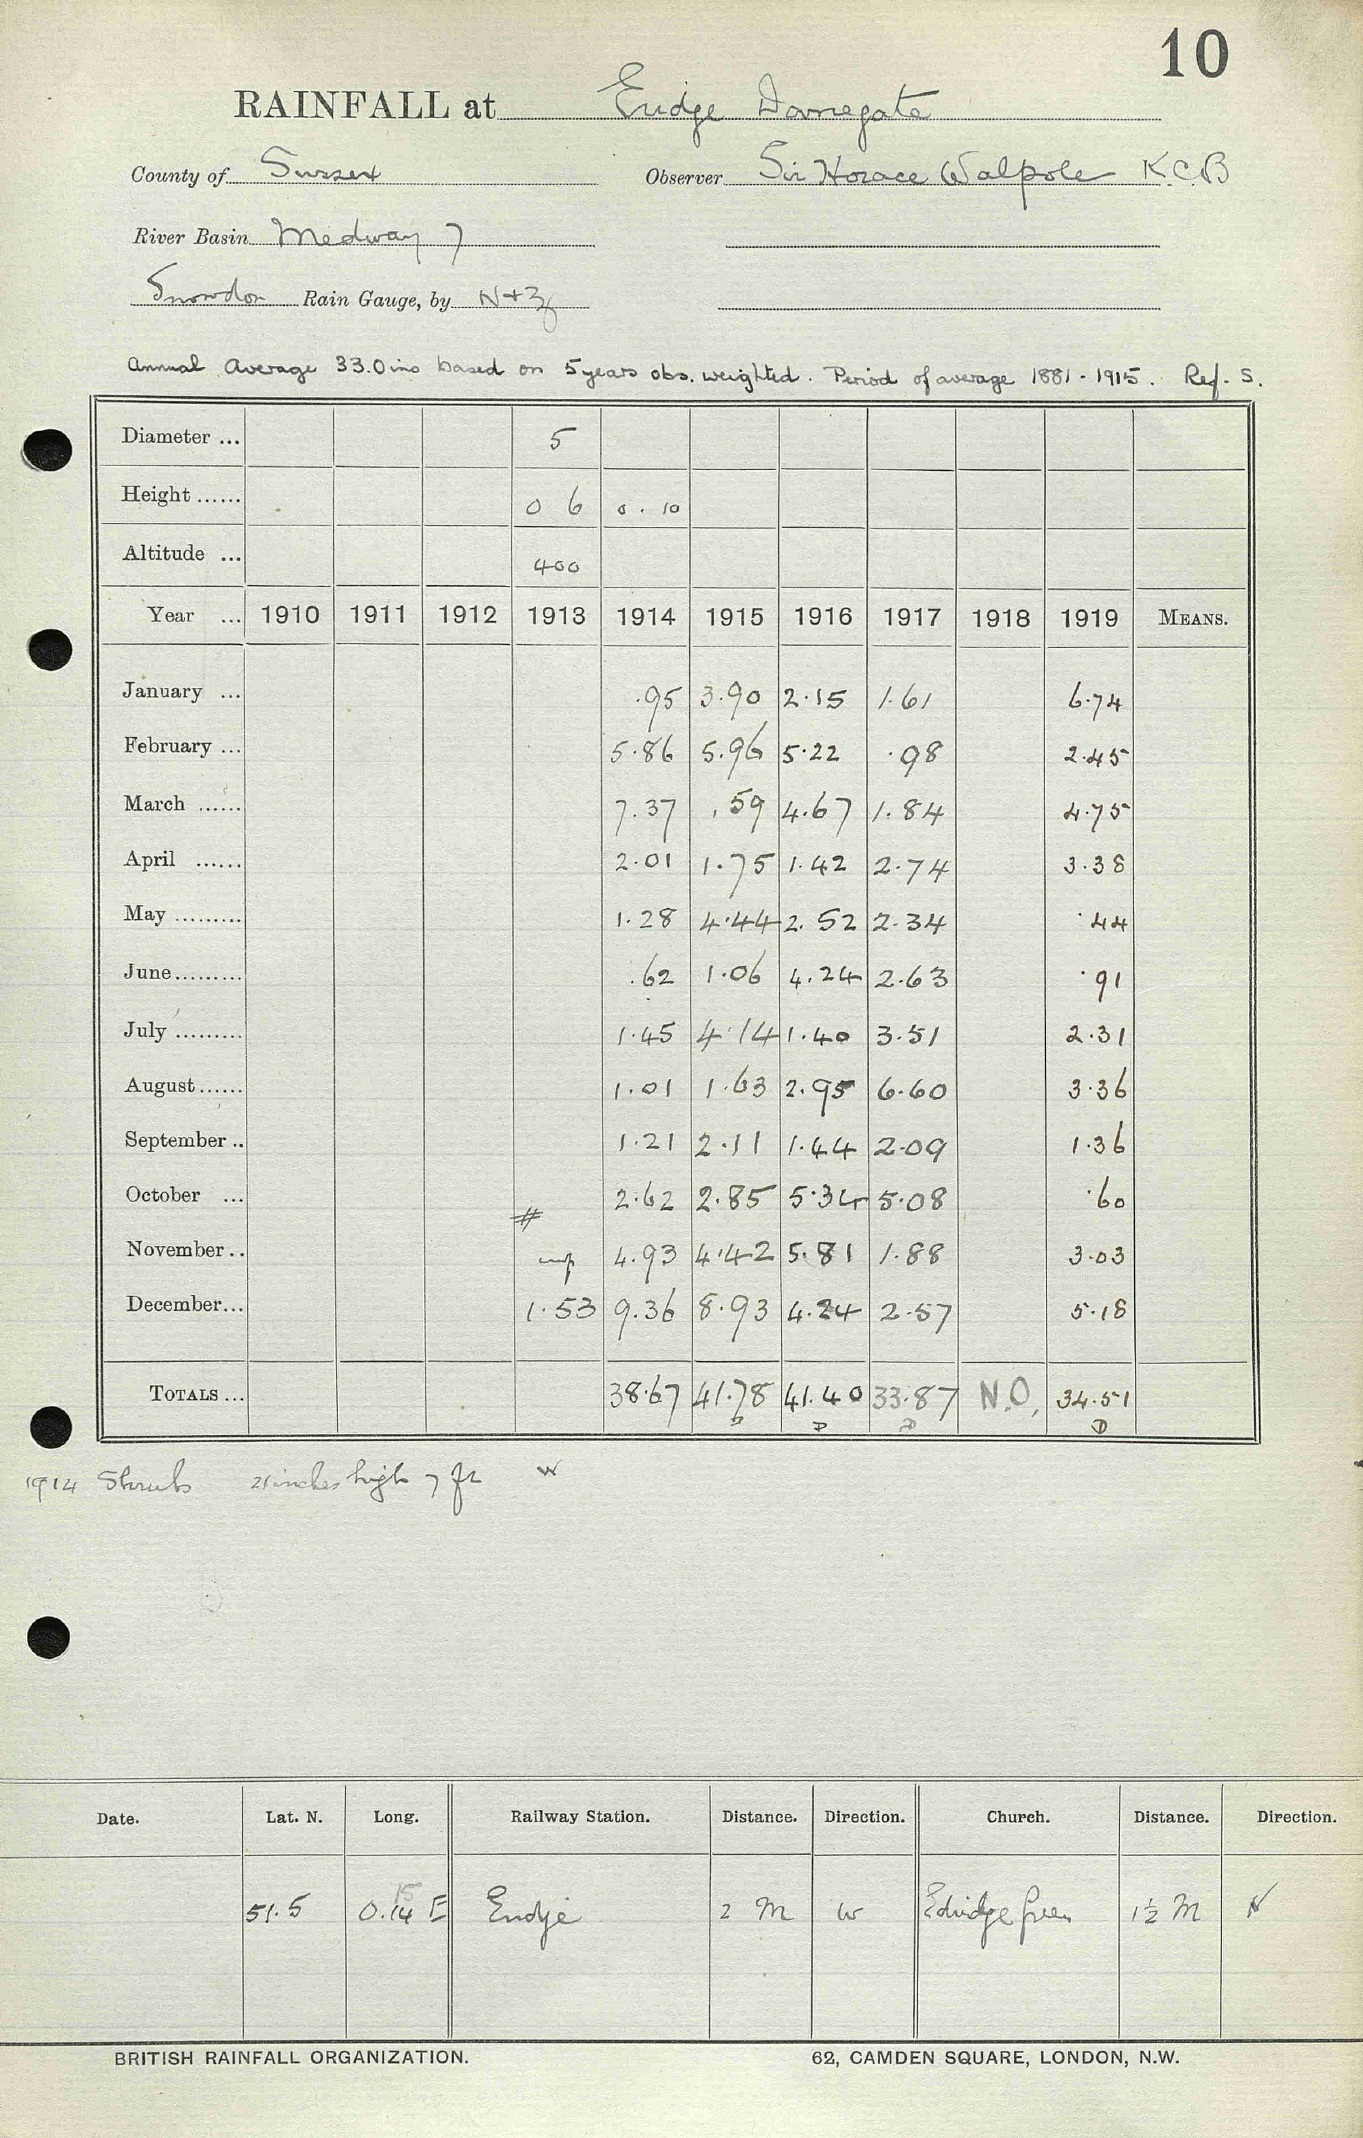 10
RAINFALL at Eridge Danegate
County of Sussex Observer Sir Horace Walpole K.C.B
River Basin Medway 7
Snowdon Rain Gauge, by N+Z
Annual Average 33.0ins based on 5 years obs. weighted. Period of average 1881-1915. Ref. S.
Diameter ... 5
Height ...... 0 6 0.10
Altitude ... 400
Year ... 1910 1911 1912 1913 1914 1915 1916 1917 1918 1919 MEANS.
January ... .95 3.90 2.15 1.61 6.74
February ... 5.86 5.96 5.22 .98 2.45
March ...... 7.37 .59 4.67 1.84 4.75
April ...... 2.01 1.75 1.42 2.74 3.38
May ......... 1.28 4.44 2.52 2.34 .44
June......... .62 1.06 4.24 2.63 .91
July ......... 1.45 4.14 1.40 3.51 2.31
August...... 1.01 1.63 2.95 6.60 3.36
September .. 1.21 2.11 1.44 2.09 1.36
October ... 2.62 2.85 5.34 5.08 .60
November.. 4.93 4.42 5.81 1.88 3.03
December... 1.53 9.36 8.93 4.24 2.57 5.18
TOTALS ... 38.67 41.78 41.40 33.87 N.O. 34.51
D D D D
1914 Shrubs 21 inches high 7 ft W
Date. Lat. N. Long. Railway Station. Distance. Direction. Church. Distance. Direction.
15
51.5 0.14 E Eridge 2 M W Eridge Green 1½ M N
BRITISH RAINFALL ORGANIZATION. 62, CAMDEN SQUARE, LONDON, N.W.